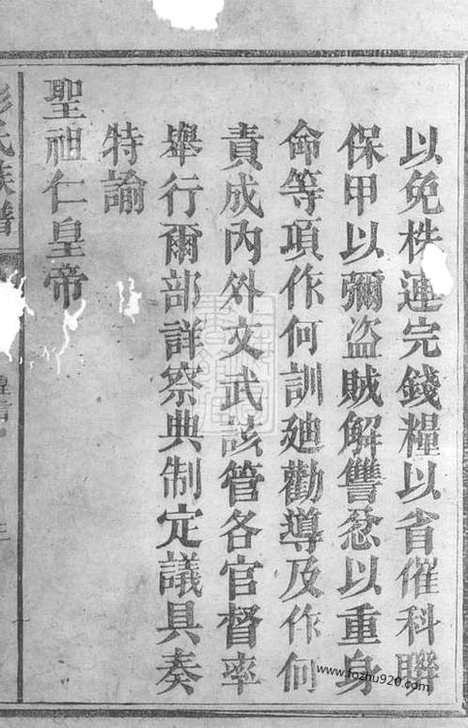 以免株連完錢糧以省催科聯
保甲以彌盜賊解讐忿以重身
命等項作何訓廸勸導及作何
責成內外文武該管各官督率
舉行爾部詳察典制定議具奏
特諭
聖祖仁皇帝
氏族譜
www.fozhu920.com